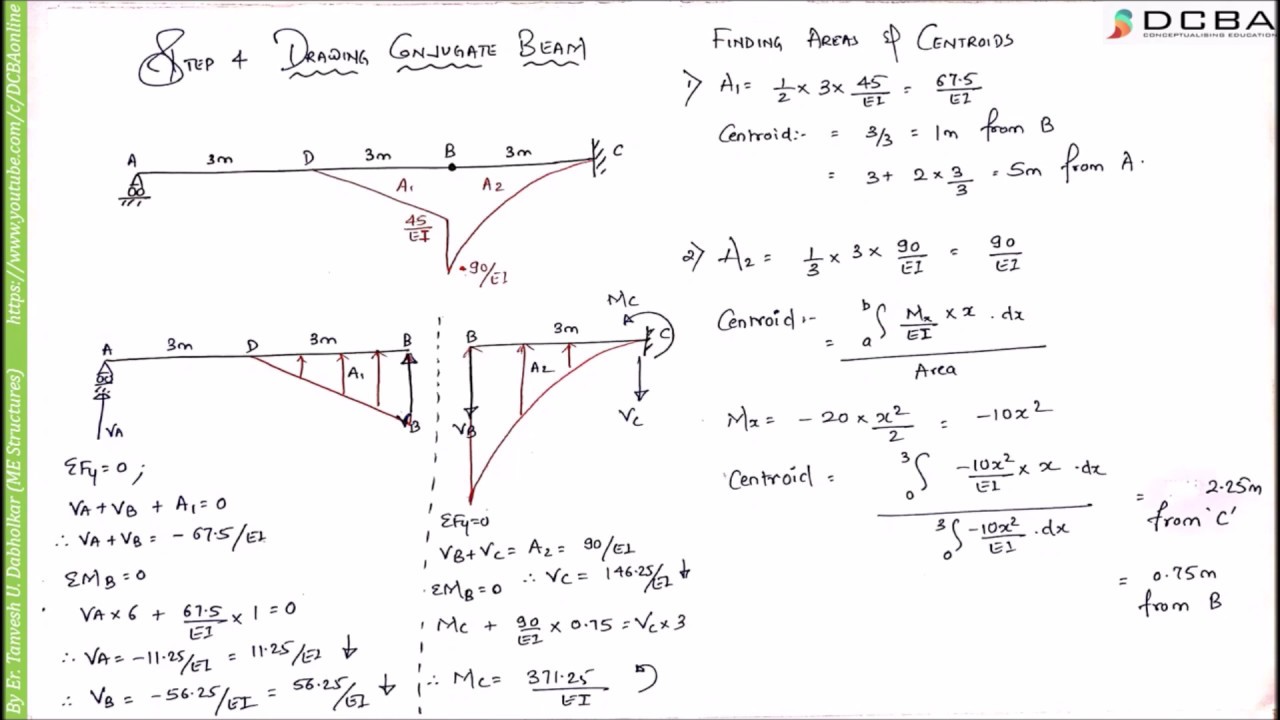 By Er. Tanvesh U. Dabholkar (ME Structures) https://www.youtube.com/c/DCBAonline
DCBA
CONCEPTUALISING EDUCATION
STEP 4 DRAWING CONJUGATE BEAM
A 3m D 3m B 3m C
A₁ A₂
45/EI
90/EI
A 3m D 3m B
A₁
VA VB
ΣFy=0 ;
VA+VB + A₁=0
∴ VA+VB = - 67.5/EI
ΣMB=0
VA×6 + 67.5/EI × 1=0
∴ VA= -11.25/EI = 11.25/EI ↓
∴ VB = -56.25/EI = 56.25/EI ↓
Mc
B 3m C
A₂
VB Vc
ΣFy=0
VB+Vc= A₂ = 90/EI
ΣMB=0 ∴ Vc= 146.25/EI ↓
Mc + 90/EI × 0.75 = Vc×3
∴ Mc= 371.25/EI
FINDING AREAS & CENTROIDS
1) A₁= 1/2 × 3× 45/EI = 67.5/EI
Centroid:- = 3/3 = 1m from B
= 3+ 2×3/3 = 5m from A.
2) A₂ = 1/3 × 3× 90/EI = 90/EI
Centroid:- = a∫b Mx/EI × x . dx / Area
Mx= - 20× x²/2 = -10x²
Centroid = 0∫3 -10x²/EI × x .dx / 0∫3 -10x²/EI . dx = 2.25m
from 'C'
= 0.75m
from B